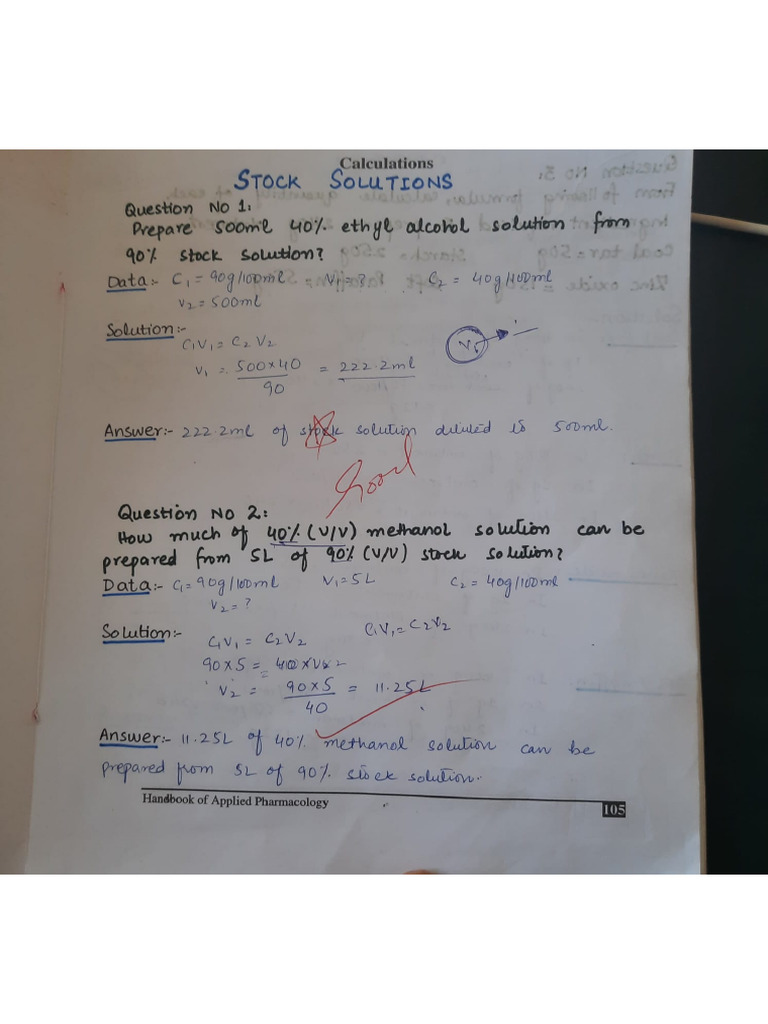 Calculations
STOCK SOLUTIONS
Question No 1:
Prepare 500ml 40% ethyl alcohol solution from
90% stock solution?
Data:- C₁ = 90g/100ml = V₁ = ? C₂ = 40g/100ml
V₂ = 500ml
Solution:-
C₁V₁ = C₂V₂
V₁ = 500×40 = 222.2ml
90
V₁
Answer:- 222.2ml of stock solution diluted is 500ml.
Good
Question No 2:
How much of 40% (V/V) methanol solution can be
prepared from 5L of 90% (V/V) stock solution?
Data:- C₁ = 90g/100ml V₁ = 5L C₂ = 40g/100ml
V₂ = ?
Solution:- C₁V₁ = C₂V₂
C₁V₁ = C₂V₂
90×5 =
V₂ = 90×5 = 11.25L
40
Answer:- 11.25L of 40% methanol solution can be
prepared from 5L of 90% stock solution.
Handbook of Applied Pharmacology
105